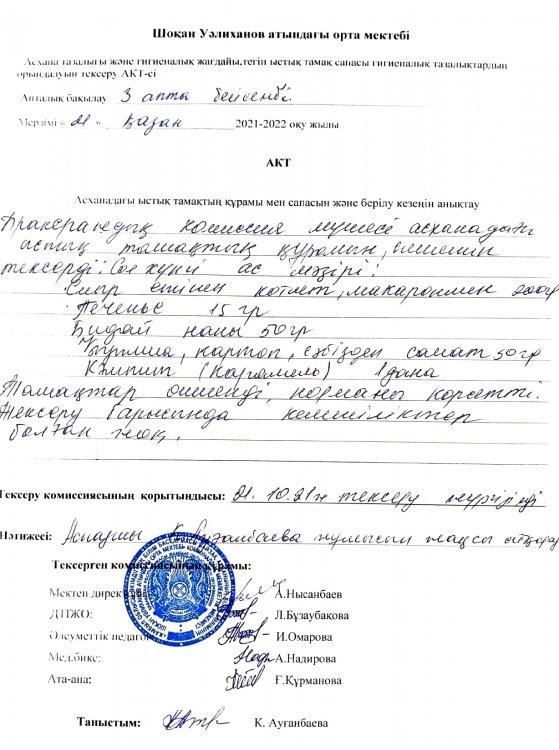 Шоқан Уәлиханов атындағы орта мектебі
Асхана тазалығы және гигиеналық жағдайы,тегін ыстық тамақ сапасы гигиеналық тазалықтардың
орындалуын тексеру АКТ-сі
Апталық бақылау 3 апта бейсенбі
Мерзімі « 21 » қазан 2021-2022 оқу жылы
АКТ
Асханадағы ыстық тамақтың құрамы мен сапасын және берілу кезеңін анықтау
комиссия мүшесі асханадағы
тамақтың құрамын,
тексерді. күнгі ас мәзірі:
Сиыр етінен котлет, макаронмен 200гр
Печенье 15 гр
Бидай наны 50гр
картоп, сәбізден салат 50гр
Кәмпит (Карамель) 1дана
Тамақтар өлшенді, норманы көрсетті.
Тексеру барысында кемшіліктер
болған жоқ.
Тексеру комиссиясының қорытындысы: 21.10.21ж тексеру жүргізілді
Нәтижесі: Аспазшы жұмысын жақсы атқаруда
Тексерген комиссияның құрамы:
Мектеп директоры А.Нысанбаев
ДТІЖО: Л.Бұзаубақова
Әлеуметтік педагог И.Омарова
Мед.бике: А.Надирова
Ата-ана: Ғ.Құрманова
Таныстым: К. Ауғанбаева